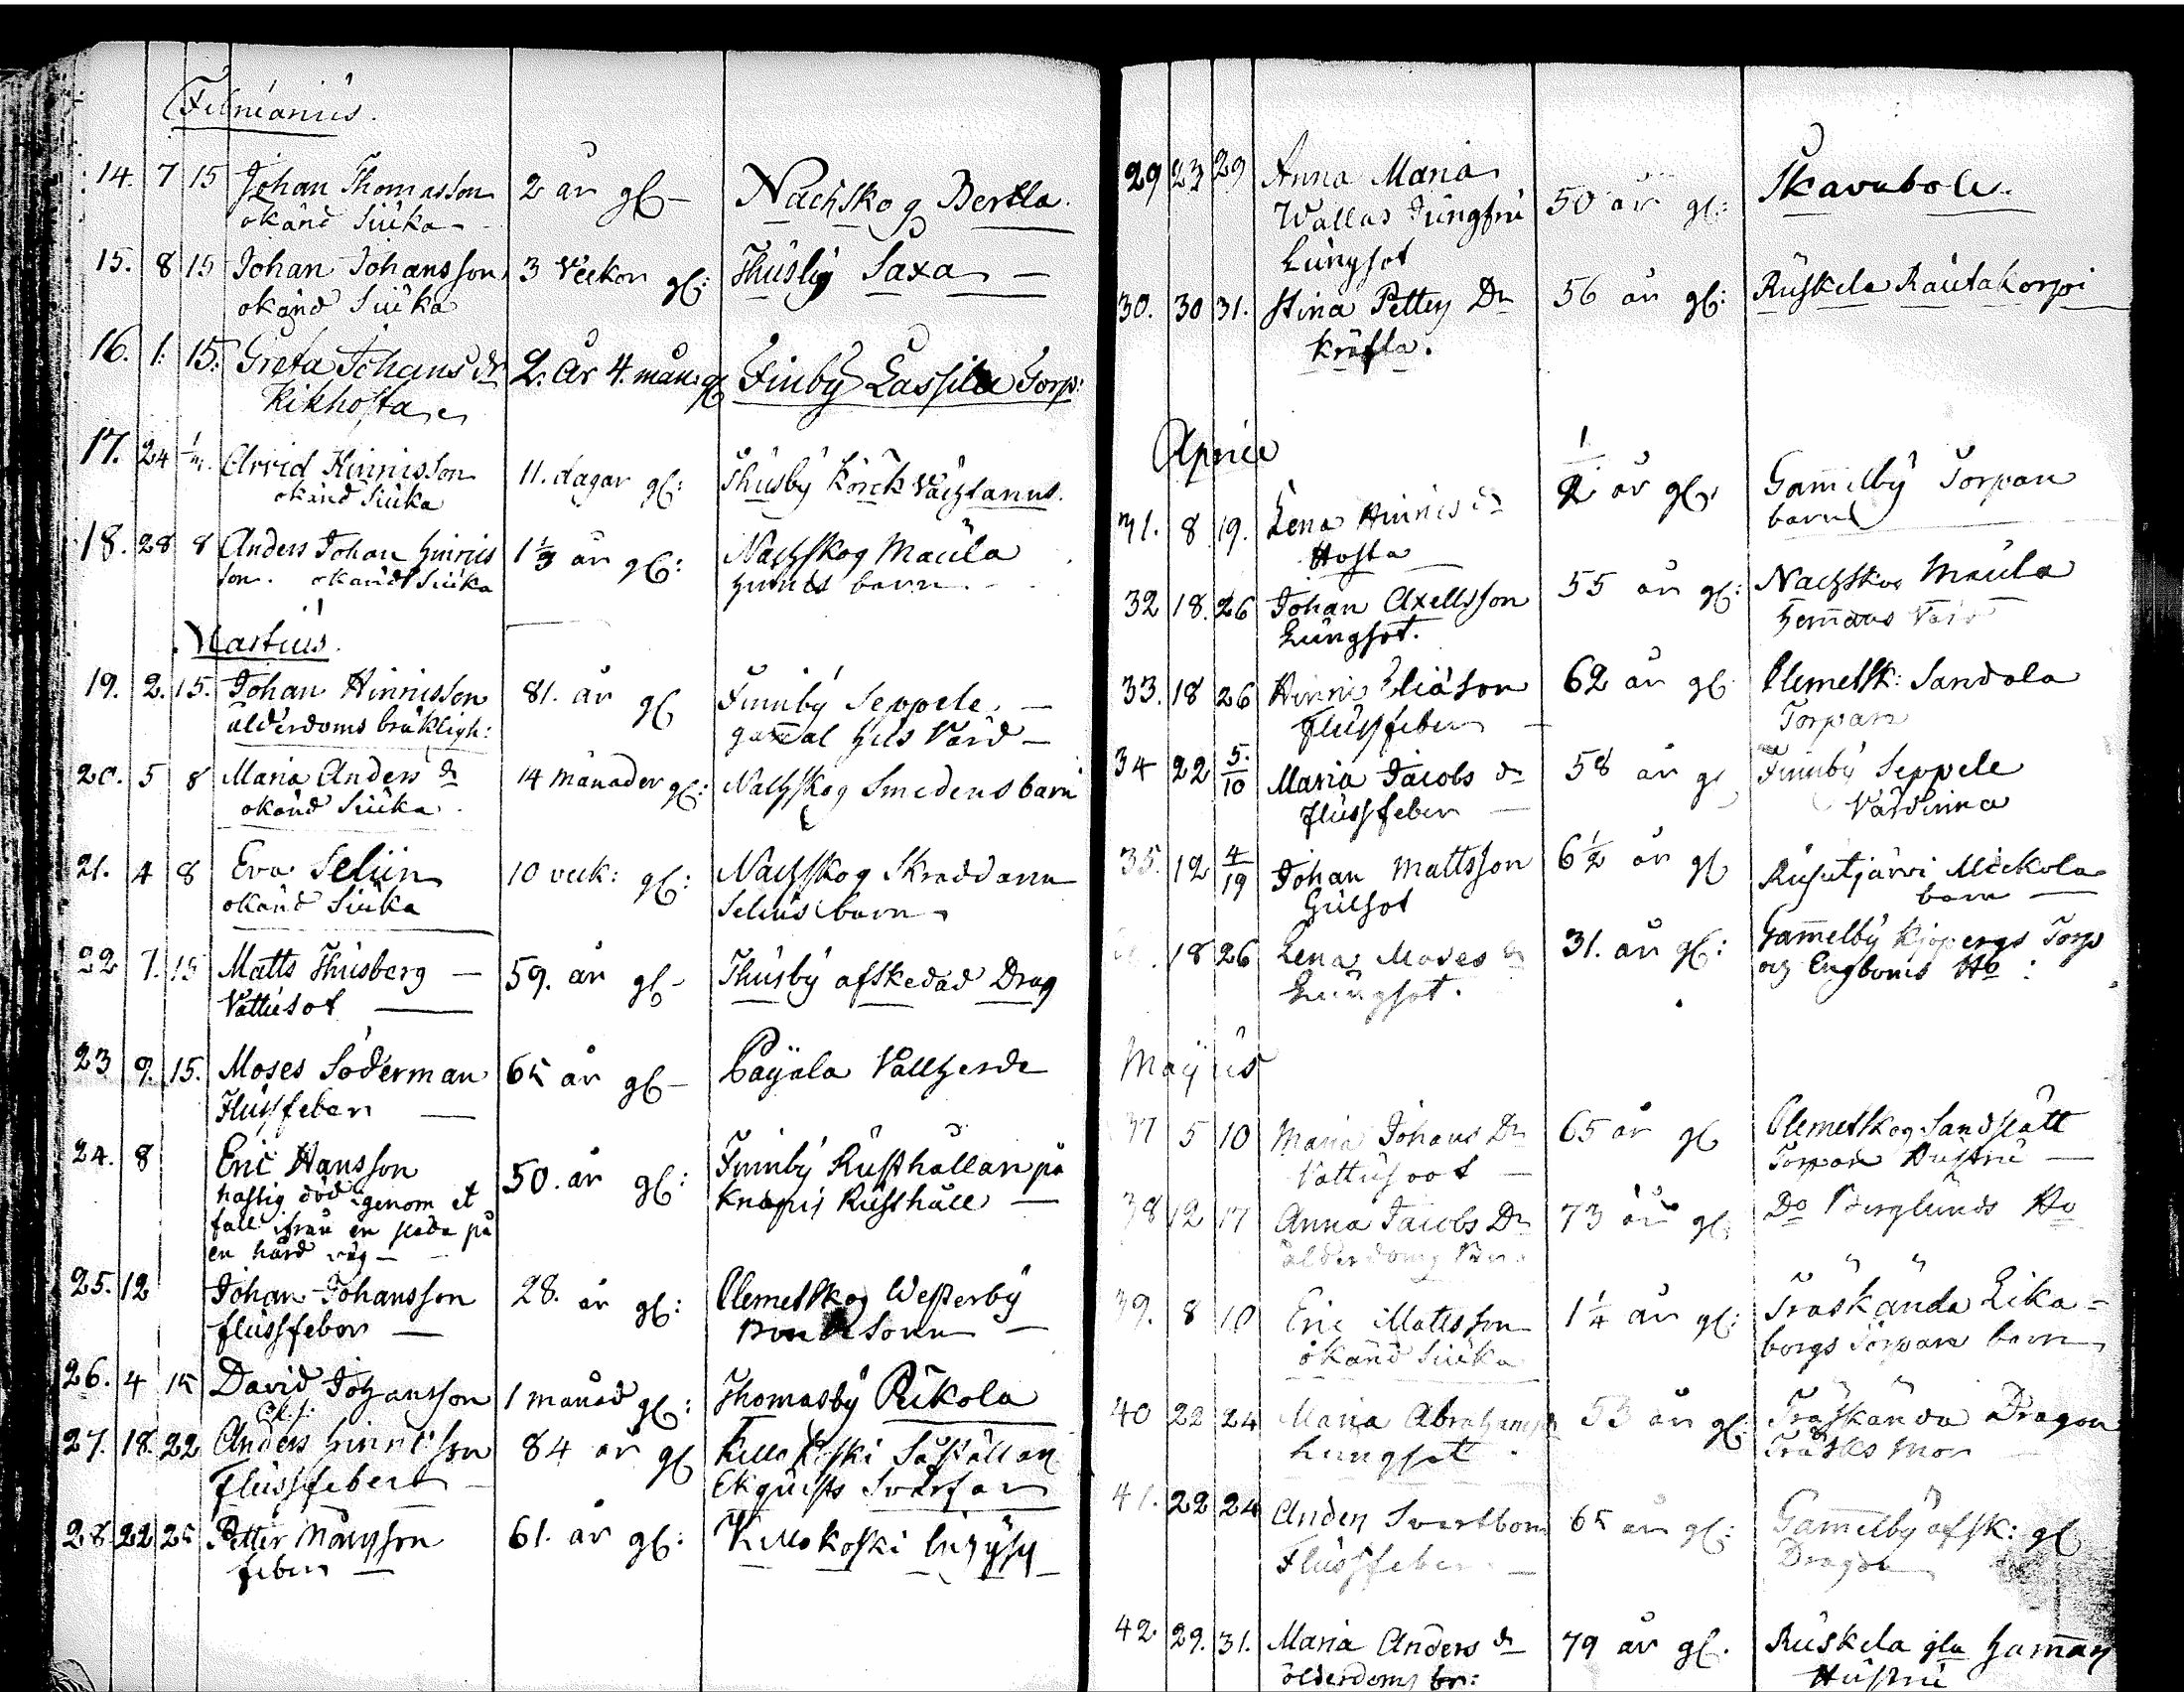 Februarius.
14. 7 15 Johan Thomasson 2 år gl- Nachskog Bertla.
okänd Siuka -
15. 8 15 Johan Johansson 3 Veckor gl: Thusby Saxa -
okänd Siuka
16. 1. 15. Greta Johans dr 2. år 4. mån: gl Finby Lassila Torp:
Kikhosta
17. 24 1/m. Arvid Hinrisson 11. dagar gl: Thusby Körck
okänd Siuka
18. 28 8 Anders Johan Hinrics 1 1/3 år gl: Nachskog Maula
son. okänd Siuka barn.
Martius.
19. 2. 15. Johan Hinrisson 81. år gl Finnby Seppele. -
ålderdoms bräkligh: gammal Värd -
20. 5 8 Maria Anders dr 14 månader gl: Nachskog Smedens barn
okänd Siuka.
21. 4 8 Eva Seliin 10 veck: gl: Nachskog Skraddaren
okänd Siuka Selins barn
22 7. 15 Matts Thusberg - 59. år gl- Thusby afskedad Drag
Vattusot -
23 9. 15. Moses Söderman 65 år gl- Pajala Vallherde
Flussfeber -
24. 8 Eric Hansson 50. år gl: Finnby Rusthållan på
hastig död genom et Knapis Rusthåll -
fall ifrån en släda på
en hård väg -
25. 12 Johan Johansson 28. år gl: Clemetskog Westerby
flussfeber - Bonde Sonn -
26. 4 15 David Johansson 1 månad gl: Thomasby Pikola
ok. s.
27. 18. 22 Anders Hinricsson 84 år gl Killokoski
Flussfeber - Ekquists Svärfar
28. 22 25 Petter Månsson 61. år gl: Killokoski
feber -
29 23 29 Anna Maria 50 år gl: Skavabole.
Wallas Jungfru
Lungsot
30. 30 31. Stina Petters Dr 56 år gl: Ruskela Rautakorpi
kräfta.
April
31. 8 19. Lena Hinrics dr 1/2 år gl: Gammelby Torpare
Hosta barn
32 18. 26 Johan Axellsson 55 år gl: Nachskog Maula
Lungsot. Hemmans Värd
33. 18 26 Hinric Eliason 62 år gl. Clemetsk: Sandola
Flussfeber - Torpare
34 22 5/10 Maria Jacobs dr 58 år gl Finnby Seppele
flussfeber - Värdinna
35. 12 4/19 Johan Mattsson 6 1/2 år gl Rusutjärvi Mickola
Gulsot barn -
18 26 Lena Moses dr 31. år gl: Gammelby Kjopergs Torp
Lungsot. och Engboms Ho:
Majus
37 5 10 Maria Johans Dr 65 år gl Clemetskog Sandslätt
Vattusoot - Torpare Hustru -
38 12 17 Anna Jacobs Dr 73 år gl: Do Berglunds Ho
ålderdoms
39. 8 10 Eric Mattsson 1 1/4 år gl: Träskända Lika-
okänd Siuka borgs Torpare barn
40 22 24 Maria Abrahams 53 år gl: Träskända Dragon
Lungsot. Träsks Mor
41. 22 24 Anders Svartbom 65 år gl: Gammelby afsk: gl
Flussfeber - Dragon
42. 29. 31. Maria Anders dr 79 år gl. Ruskela gla
ålderdoms br: Hustru